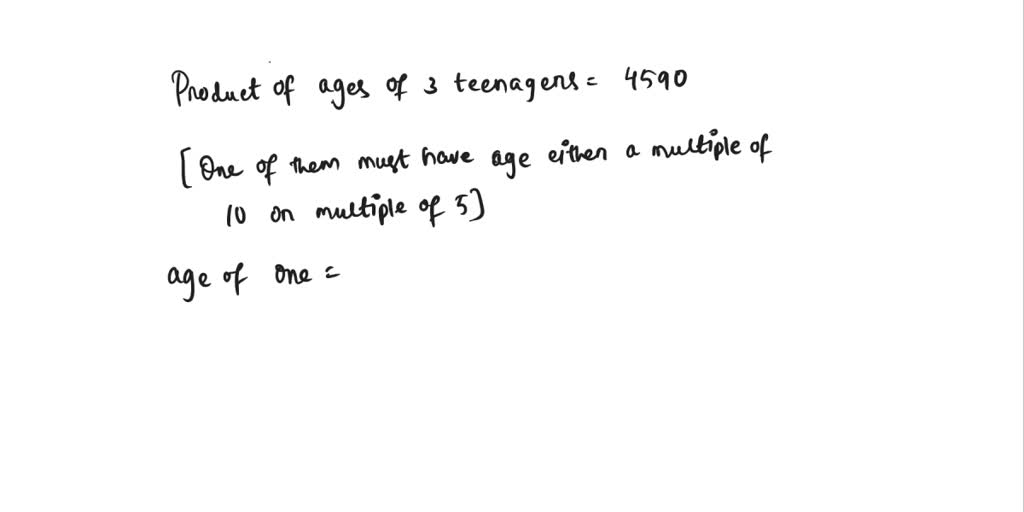 Product of ages of 3 teenagers = 4590
[One of them must have age either a multiple of
10 or multiple of 5]
age of one =